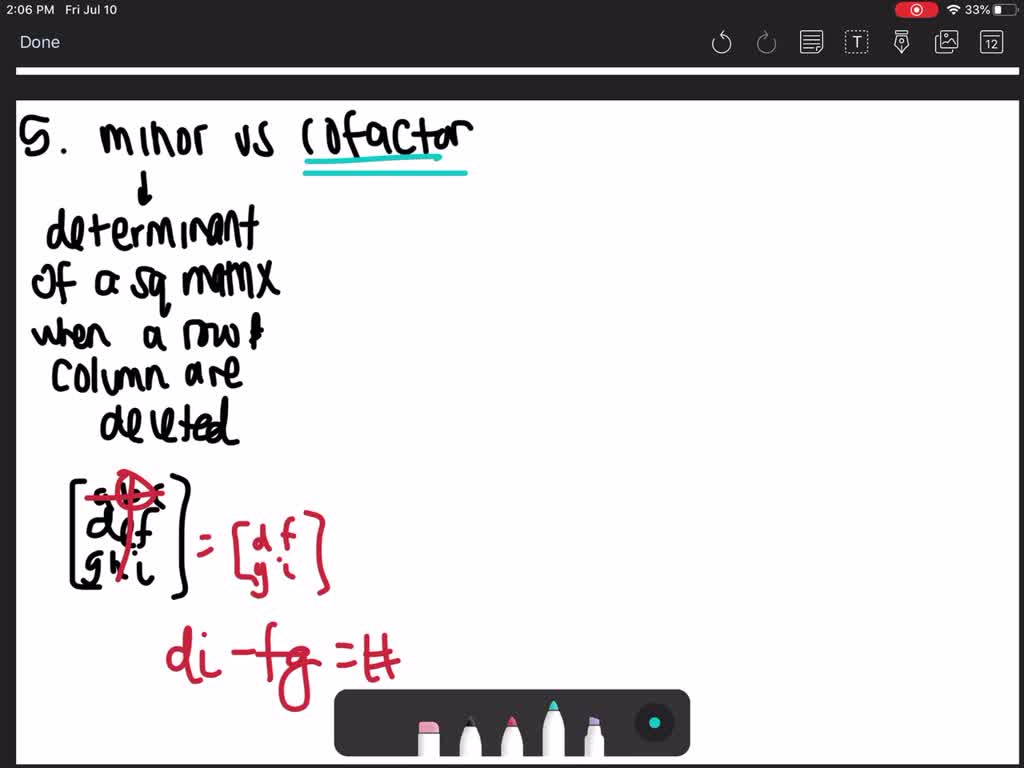 2:06 PM Fri Jul 10
33%
Done
T
12
5. minor vs cofactor
determinant
of a sq matrix
when a row &
column are
deleted
a b c
d e f
g h i
= [d f
g i]
di - fg = #